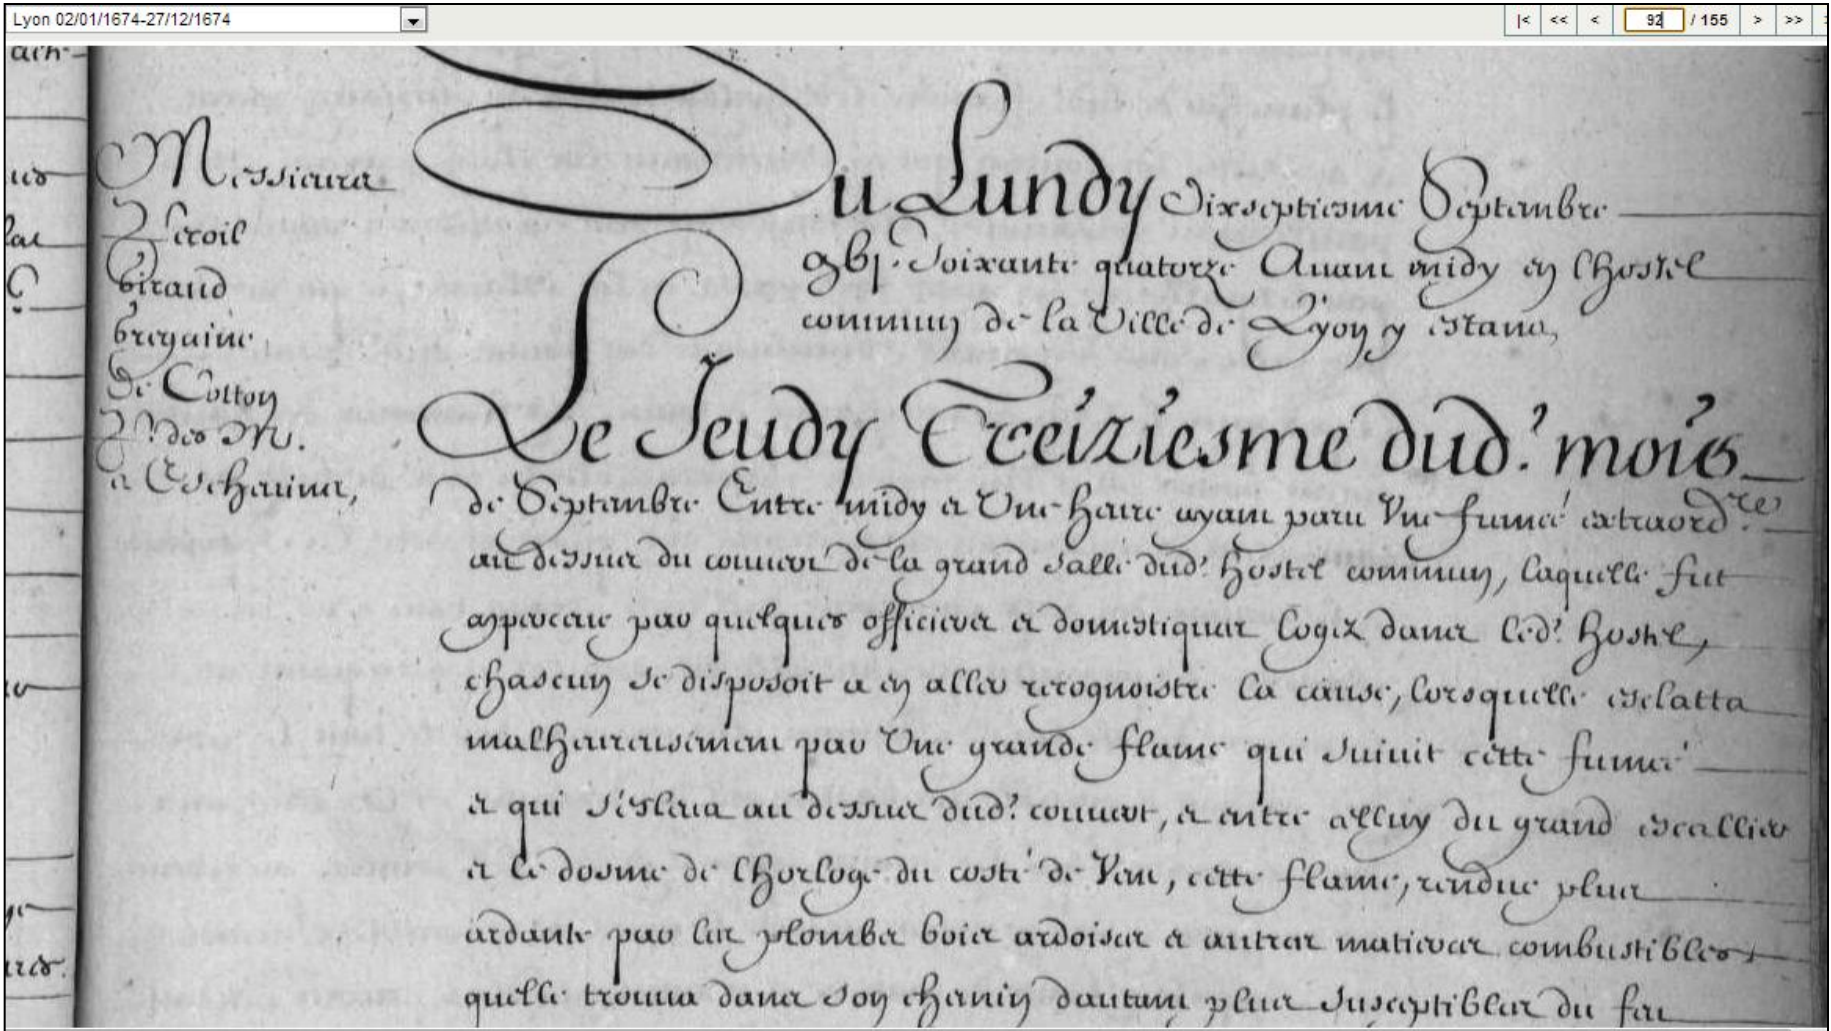 Lyon 02/01/1674-27/12/1674
|< << < 92 / 155 > >>
Messieurs
giraud
bregaine
De Cotton
P.r des M.
et Eschevins,
Du Lundy dixseptiesme Septembre
gbj.c Soixante quatorze Avant midy en lhostel
commun de la Ville de Lyon y estans,
Le Jeudy Treiziesme dud.t mois
de Septembre Entre midy et Une heure ayant paru Vne fumée extraord.re
au dessus du couvert de la grand salle dud.t hostel commun, laquelle fut
apperceue par quelques officiers et domestiques logez dans led.t hostel,
chascun se disposoit a en aller recognoistre la cause, lorsquelle esclatta
malheureusement par Une grande flame qui suivit cette fumée
et qui s'esleva au dessus dud.t couvert, et entre celluy du grand escallier
et le dosme de lhorloge du costé de Vent, cette flame, rendue plus
ardante par les plombs bois ardoises et autres matieres combustibles
quelle trouva dans son chemin dautant plus susceptibles du feu